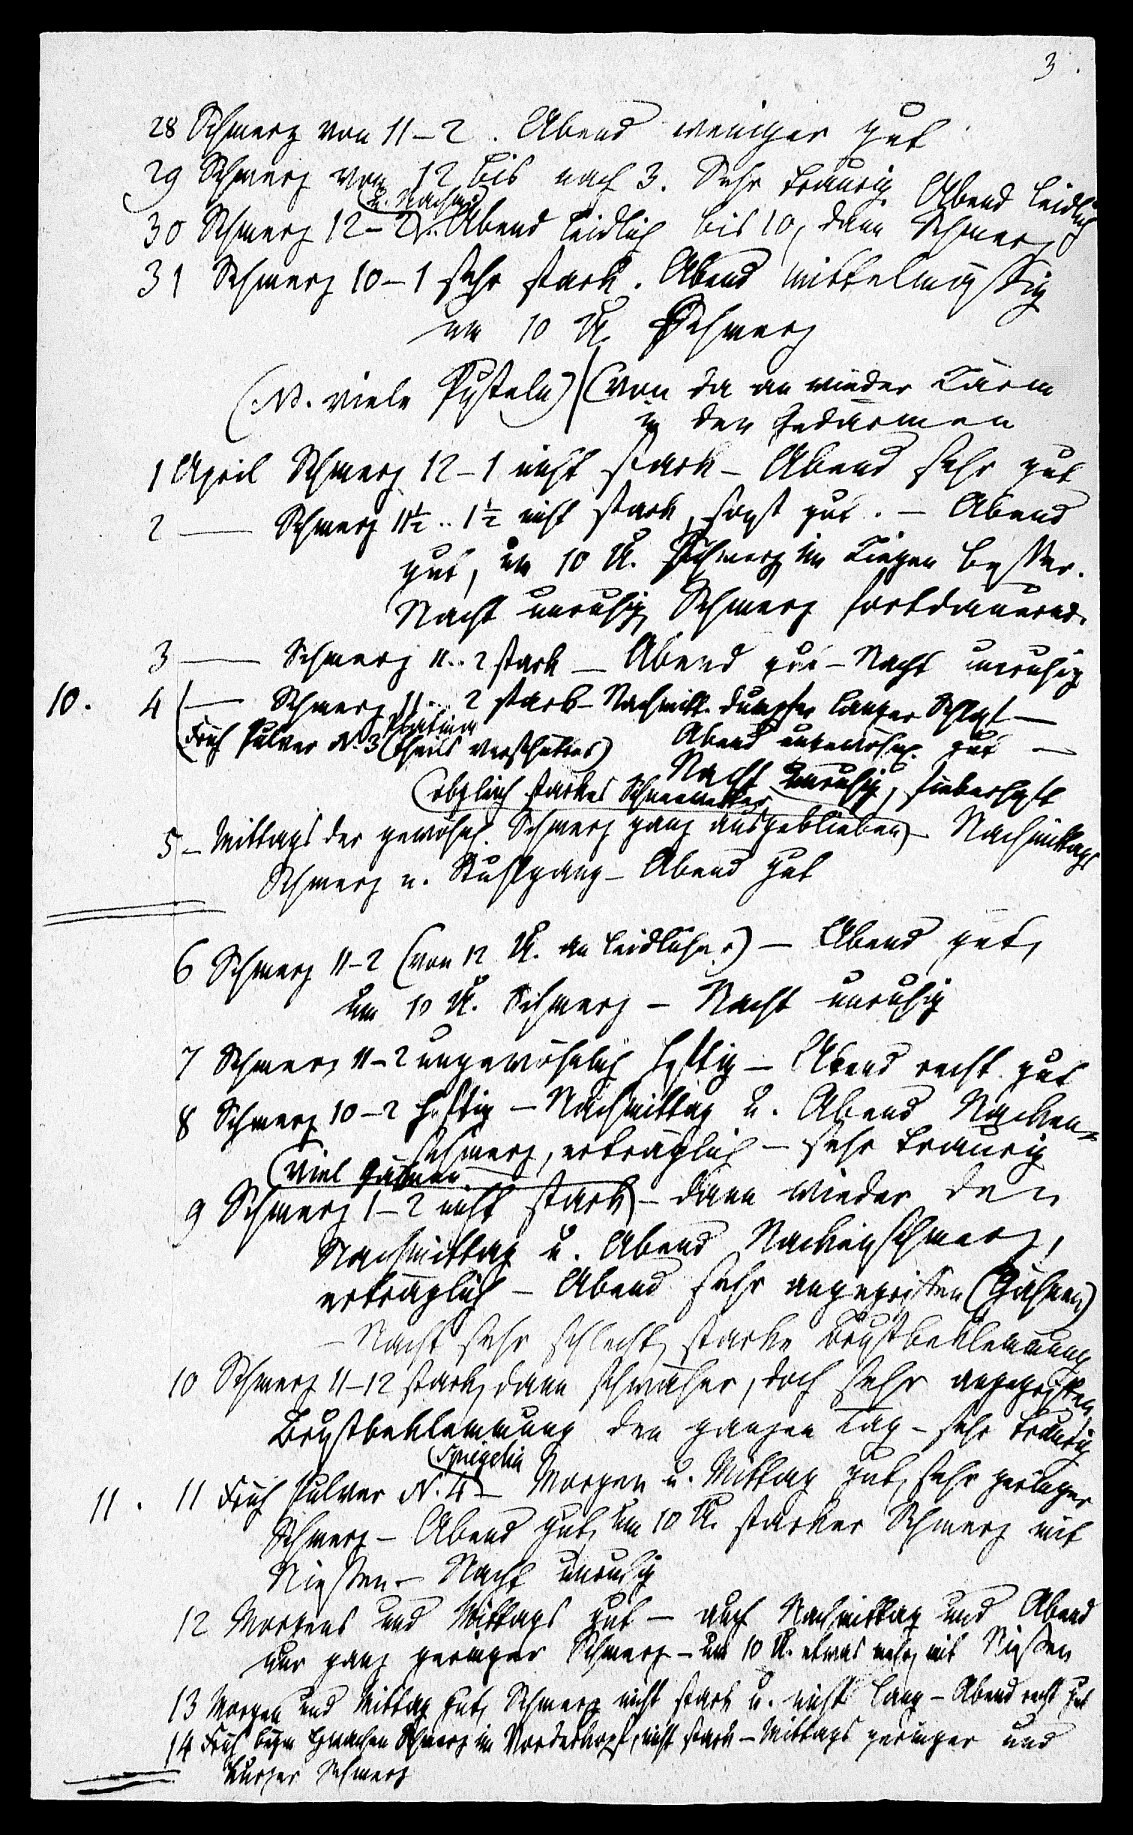 3.
28 Schmerz von 11–2. Abend weniger gut
29 Schmerz von 12 bis nach 3. Sehr traurig Abend leidlich
u. Nachm.
30 Schmerz 12–2. Abend leidlich bis 10, dann Schmerz
31 Schmerz 10–1 sehr stark. Abend mittelmässig
um 10 U. Schmerz
(NB. viele Pusteln) (von da an wieder Lärm
in den Gedärmen
1 April Schmerz 12–1 nicht stark – Abend sehr gut
2 — Schmerz 11½..1½ nicht stark, sonst gut. – Abend
gut, um 10 U. Schmerz im Liegen besser.
Nacht unruhig Schmerz fortdauernd.
3 — Schmerz 11..2 stark – Abend gut – Nacht unruhig
10. 4 — Schmerz 11...2 stark – Nachmitt. dumpfer langer Schlaf —
Platina
(Früh Pulver N. 3 (theils verschüttet) Abend ungewöhnl. gut —
Nacht unruhig, fieberhaft
(obgleich starkes Schneewetter
5 – Mittags der gewöhnl. Schmerz ganz ausgeblieben) – Nachmittags
Schmerz u. Stuhlgang – Abend gut
6 Schmerz 11–2 (von 12 U. an leidlicher) – Abend gut,
um 10 U. Schmerz – Nacht unruhig
7 Schmerz 11–2 ungewöhnlich heftig – Abend recht gut
8 Schmerz 10–2 heftig – Nachmittag u. Abend Nacken=
schmerz, erträglich – sehr traurig
(viel Gähnen
9 Schmerz 1–2 nicht stark) – dann wieder den
Nachmittag u. Abend Nackenschmerz,
erträglich – Abend sehr angegriffen (Gähnen)
– Nacht sehr schlecht, starke Brustbeklemmung
10 Schmerz 11–12 stark, dann schwächer, doch sehr angegriffen
Brustbeklemmung den ganzen Tag – sehr traurig
Spigelia
11. 11 Früh Pulver N. 4 – Morgen u. Mittag gut, sehr geringer
Schmerz – Abend gut, um 10 U. starker Schmerz mit
Niessen – Nacht unruhig
12 Morgens und Mittags gut – auch Nachmittag und Abend
nur ganz geringer Schmerz – um 10 U. etwas mehr, mit Niessen
13 Morgen und Mittag gut, Schmerz nicht stark u. nicht lang – Abend recht gut
14 Früh beym Erwachen Schmerz im Vorderkopf, nicht stark – Mittags geringer und
kurzer Schmerz